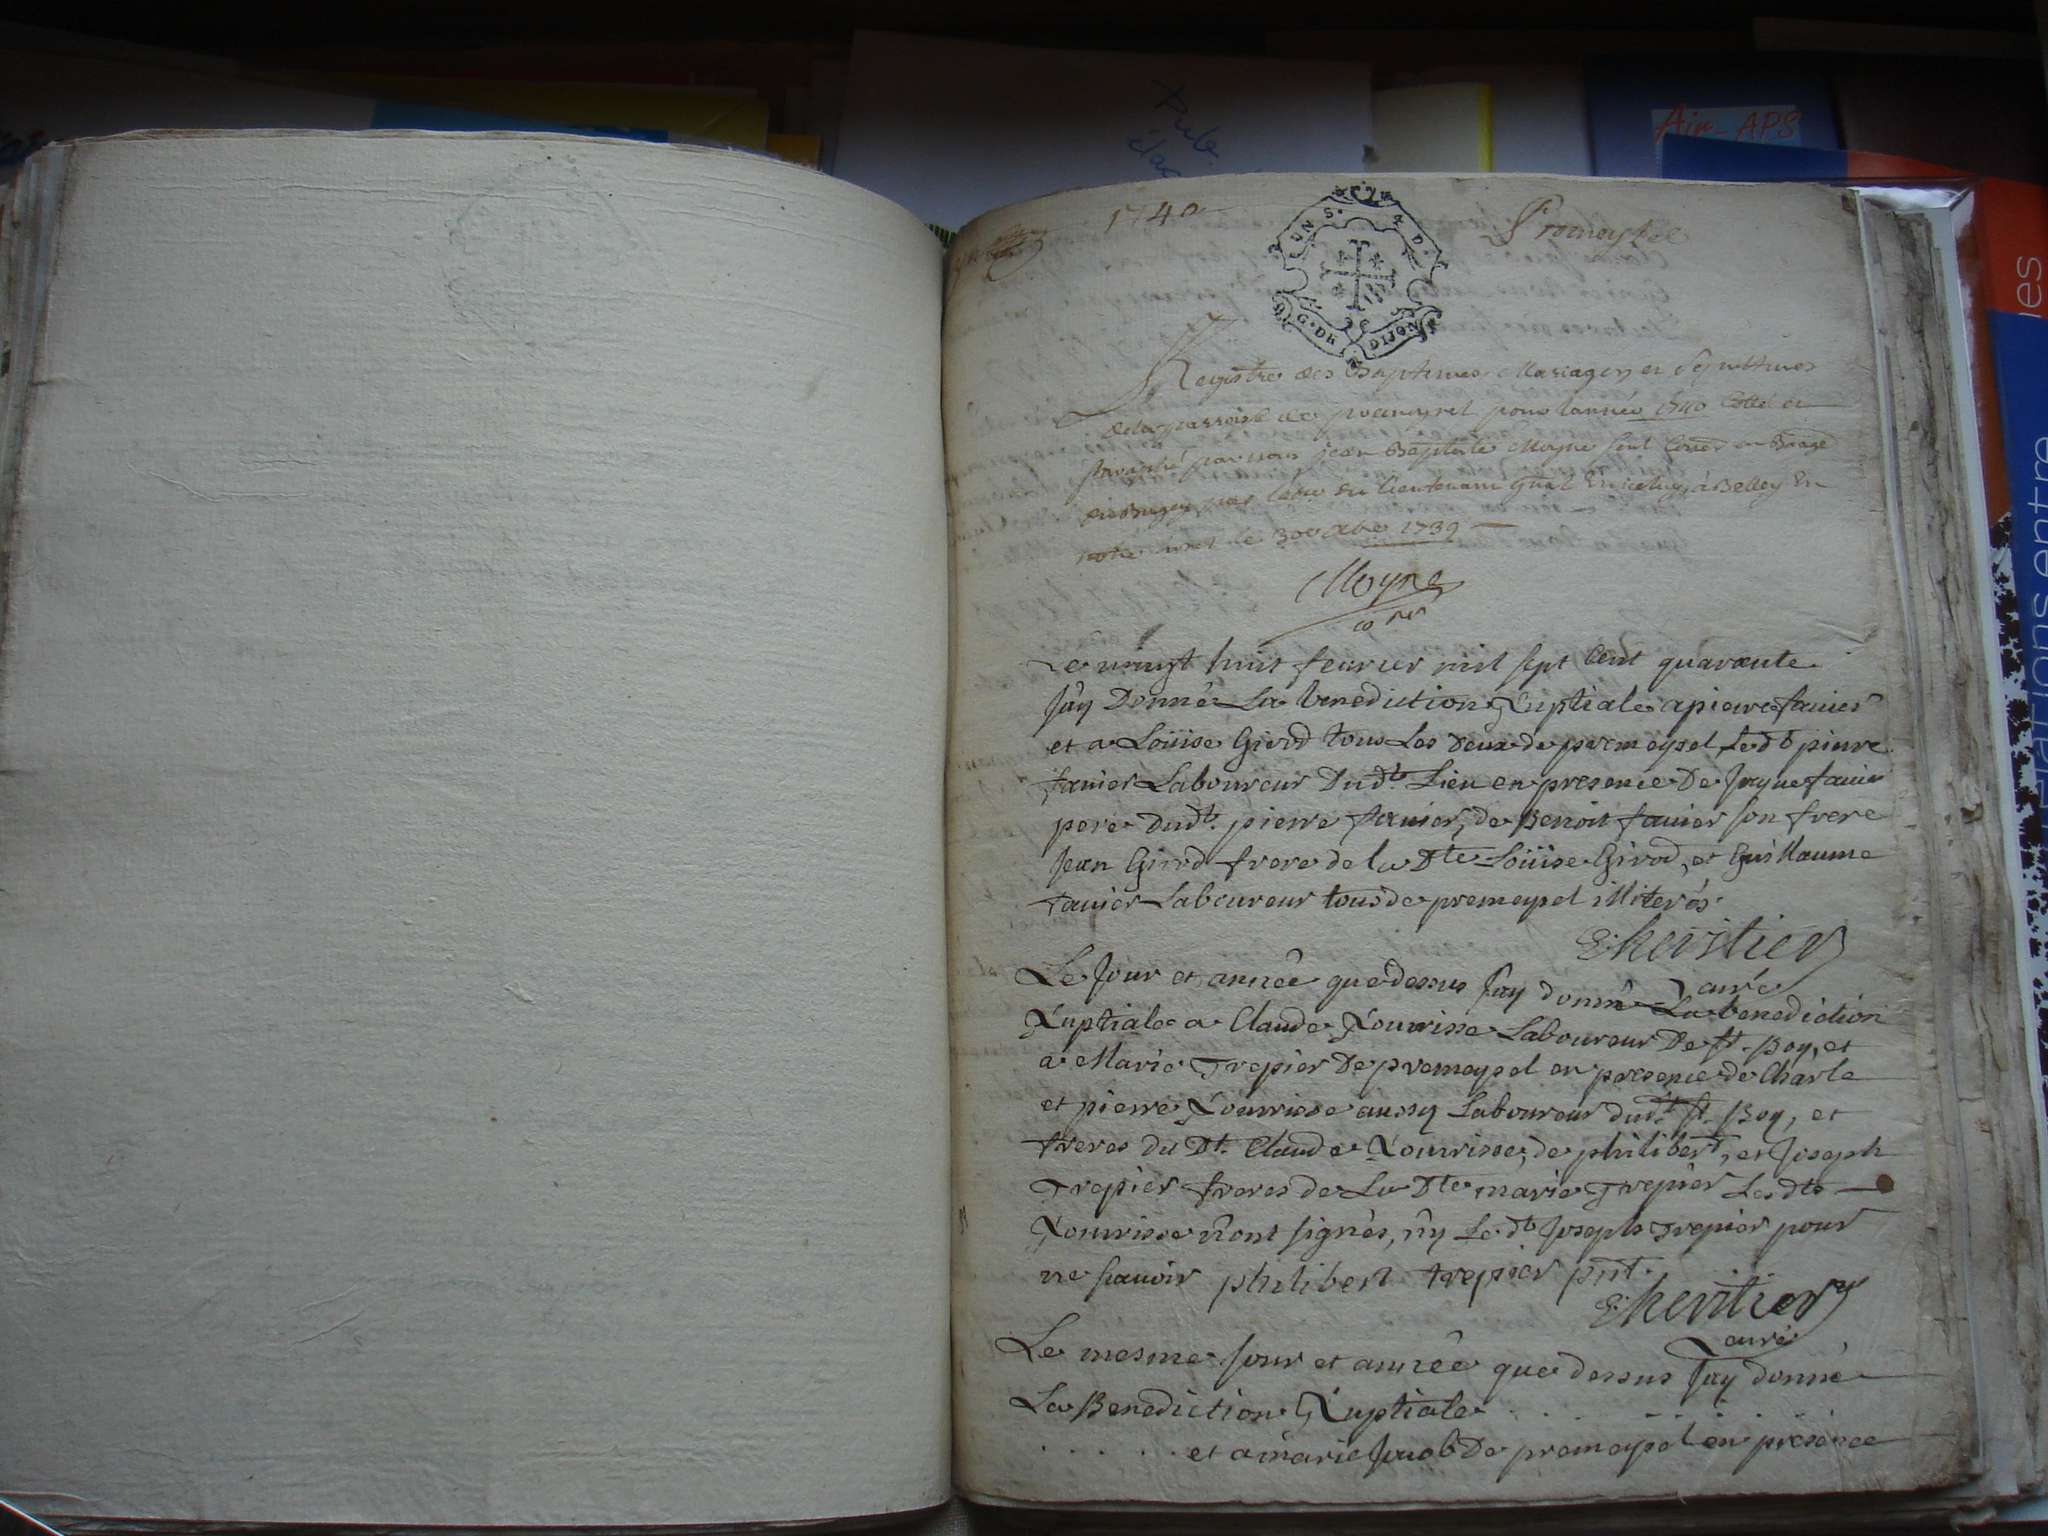 Pub.
Air-APS
1740
Promeyzel
G. DE DIJON
Registre des Baptemes Mariages et Sepultures
de la parroisse de promeyzel pour lannée 1740 Cotté et
paraphé par nous jean Baptiste Moyne
du Lieutenant gnal à Belley En
notre hotel le 30e Xbre 1739
Moyne
Le vingt huit feurier mil sept Cent quarante
J'ay Donné La benediction Nuptiale a pierre fauier
et a Loüise Girod tous Les deux de premeysel Le dt pierre
fauier Laboureur Dudt. Lieu en presence De Jaque fauier
pere dudt. pierre fauier, de Benoit fauier son frere
Jean Girod frere de la Dte Loüise Girod, et Guillaume
fauier Laboureur tous de premeysel illiterés.
Lhéritier
curé
Le Jour et année que dessus J'ay donné La benediction
Nuptiale a Claude Nourrisse Laboureur De St. Boy, et
a Marie Trepier De premeysel en presence de Charle
et pierre Nourrisse aussy Laboureur dudt. St. Boy, et
freres du Dt. Claude Nourrisse, de philibert, et Joseph
Trepier freres de La Dte marie Trepier Les dts
Nourrisse n'ont signés, n'y Le dt Joseph Trepier pour
ne scauoir philibert trepier pnt.
Lhéritier
curé
Le mesme Jour et année que dessus J'ay donné
La Benediction Nuptiale . . . . . .
. . . . . et a marie Jacob De premeysel en présence
es
ations entre